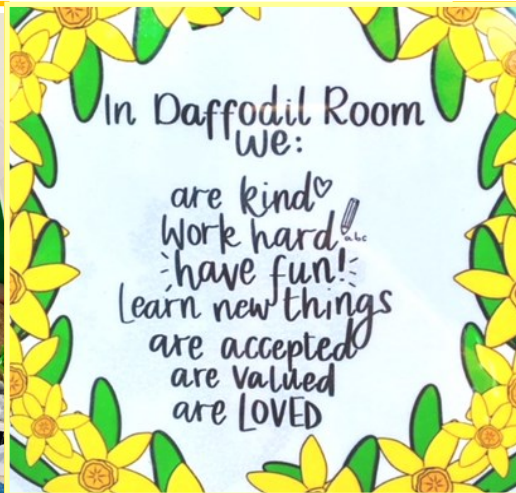 In Daffodil Room
we:
are kind
work hard
abc
have fun!
Learn new things
are accepted
are valued
are LOVED